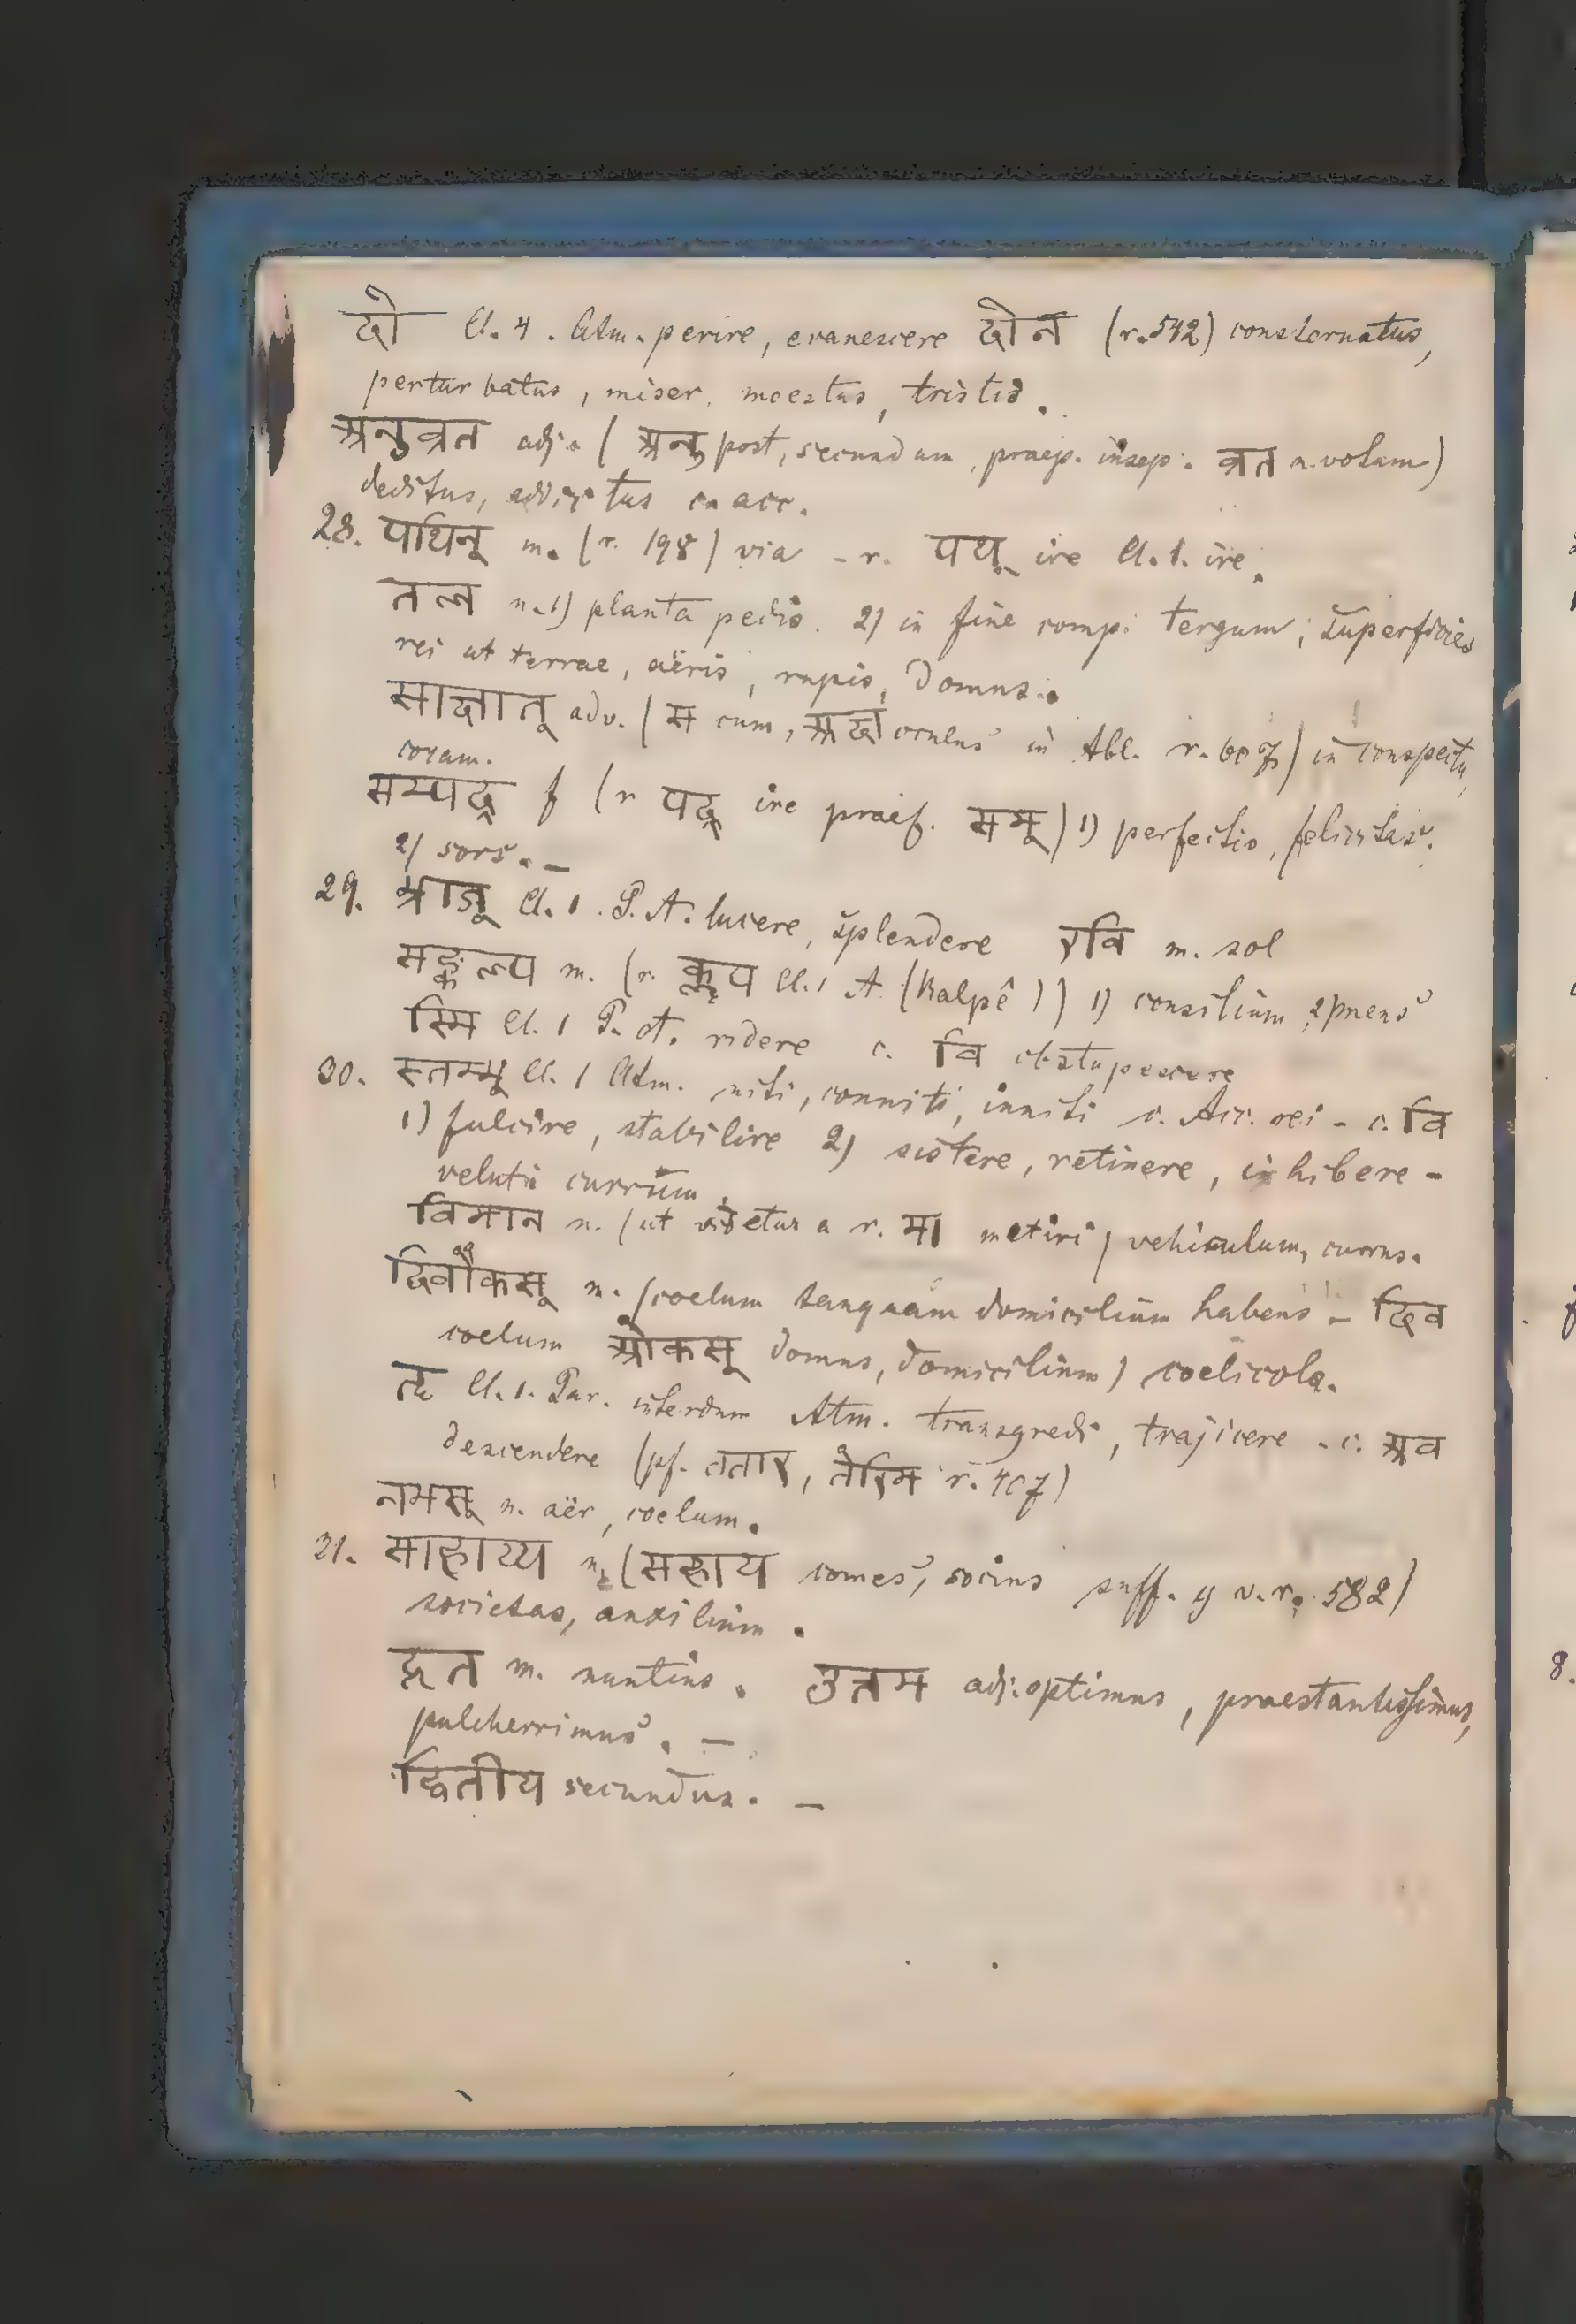 दी Cl. 4. Atm. perire, evanescere दीन (r. 542) consternatus,
perturbatus, miser, moestus, tristis.
अनुव्रत adj. (अनु post, secundum, praep. insep. व्रत n. votum)
deditus, addictus c. acc.
28. पथिन् m. (r. 198) via - r. पथ् ire Cl. 1. ire.
तल n. 1) planta pedis. 2) in fine comp. tergum, superficies
rei ut terrae, aëris, rupis, domus.
साक्षात् adv. (स cum, अक्ष oculus in Abl. r. 607) in conspectu,
coram.
सम्पद् f (r पद् ire praef. सम्) 1) perfectio, felicitas.
2) sors. -
29. भ्राज् Cl. 1. P. A. lucere, splendere रवि m. sol
सङ्कल्प m. (r. कॢप Cl. 1 A (kalpê)) 1) consilium 2) mens
स्मि Cl. 1 P. A. ridere c. वि obstupescere
30. स्तम्भ् Cl. 1 Atm. niti, conniti, inniti c. Acc. rei - c. वि
1) fulcire, stabilire 2) sistere, retinere, inhibere -
veluti currum.
विमान n. (ut videtur a r. मा metiri) vehiculum, currus.
दिवौकस् m. (coelum tanquam domicilium habens - दिव
coelum ओकस् domus, domicilium) coelicola.
तॄ Cl. 1. Par. interdum Atm. transgredi, trajicere - c. अव
descendere (pf. ततार, तेरिम r. 407)
नभस् n. aër, coelum.
31. साहाय्य n. (सहाय comes, socius suff. y v. r. 582)
societas, auxilium.
दूत m. nuntius. उत्तम adj. optimus, praestantissimus,
pulcherrimus. -
द्वितीय secundus. -